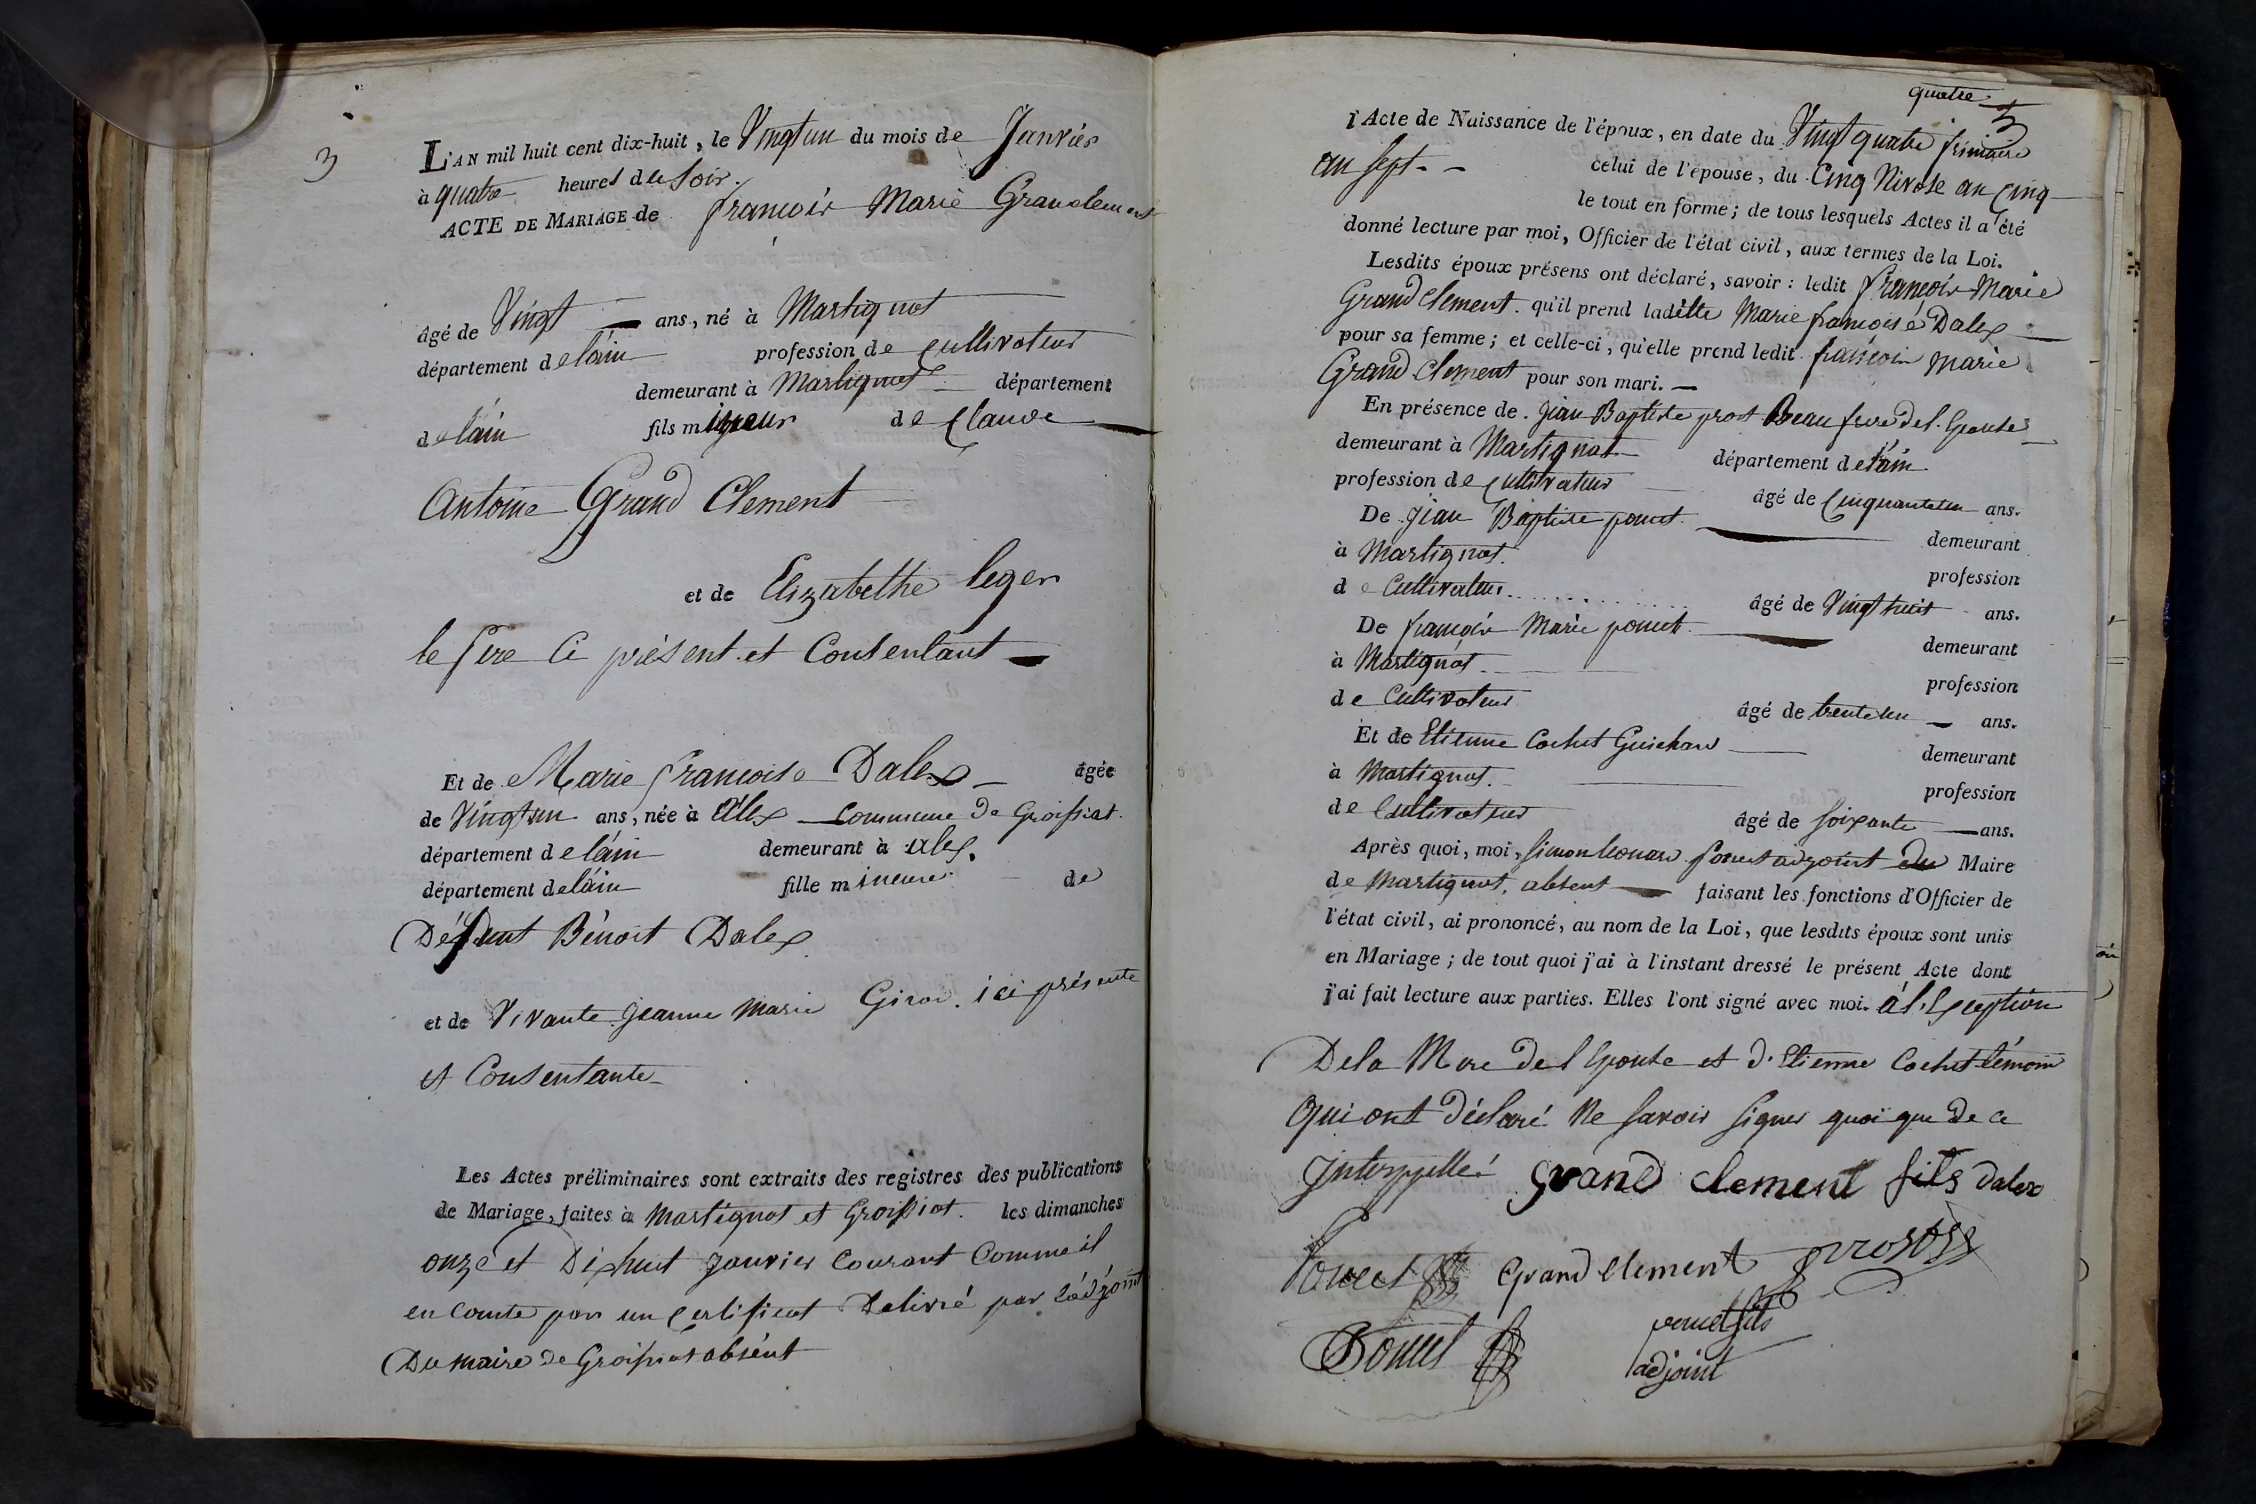 3
L'AN mil huit cent dix-huit, le Vingtun du mois de Janvier
à quatre heures du Soir.
ACTE DE MARIAGE de françois Marie Grandclement
âgé de Vingt ans, né à Martignat
département de lain profession de cultivateur
demeurant à Martignat département
de lain fils mineur de Claude
Antoine Grand Clement
et de Elizabethe leger
le pere Ci présent et Consentant
Et de Marie francoise Dalex âgée
de Vingtun ans, née à alex commune de Groissiat
département de lain demeurant à alex.
département de lain fille mineure de
Défunt Bénoit Dalex
et de Vivante Jeanne Marie Girod ici présente
et Consentante
Les Actes préliminaires sont extraits des registres des publications
de Mariage, faites à Martignat et Groissiat les dimanches
onze et Dixhuit Janvier Courant Comme il
en Conste par un Certificat Delivré par l'adjoint
Du maire de Groissiat absent
quatre
3
l'Acte de Naissance de l'époux, en date du Vingt quatre frimaire
an sept - - celui de l'épouse, du Cinq Nivose an Cinq
le tout en forme; de tous lesquels Actes il a été
donné lecture par moi, Officier de l'état civil, aux termes de la Loi.
Lesdits époux présens ont déclaré, savoir : ledit françois Marie
Grand Clement qu'il prend ladite Marie francoise Dalex
pour sa femme; et celle-ci, qu'elle prend ledit francois Marie
Grand Clement pour son mari.
En présence de Jean Baptiste prost Beau frere de l'Epouse
demeurant à Martignat département de lain
profession de Cultivateur âgé de Cinquanteun ans.
De Jean Baptiste poncet demeurant
à Martignat profession
de Cultivateur âgé de Vingt huit ans.
De françois Marie poncet demeurant
à Martignat profession
de Cultivateur âgé de trenteun ans.
Et de Etienne Cochet Guichard demeurant
à Martignat profession
de Cultivateur âgé de soixante ans.
Après quoi, moi, Simon leonard Poncet adjoint du Maire
de Martignat, absent faisant les fonctions d'Officier de
l'état civil, ai prononcé, au nom de la Loi, que lesdits époux sont unis
en Mariage; de tout quoi j'ai à l'instant dressé le présent Acte dont
j'ai fait lecture aux parties. Elles l'ont signé avec moi. à l'Exception
De la Mere de l'Epouse et d'Etienne Cochet témoin
Qui ont déclaré Ne savoir signer quoi que de ce
Interpellé grand clement fils dalex
Poncet Grand Clement prost
Poncet poncet fils
adjoint